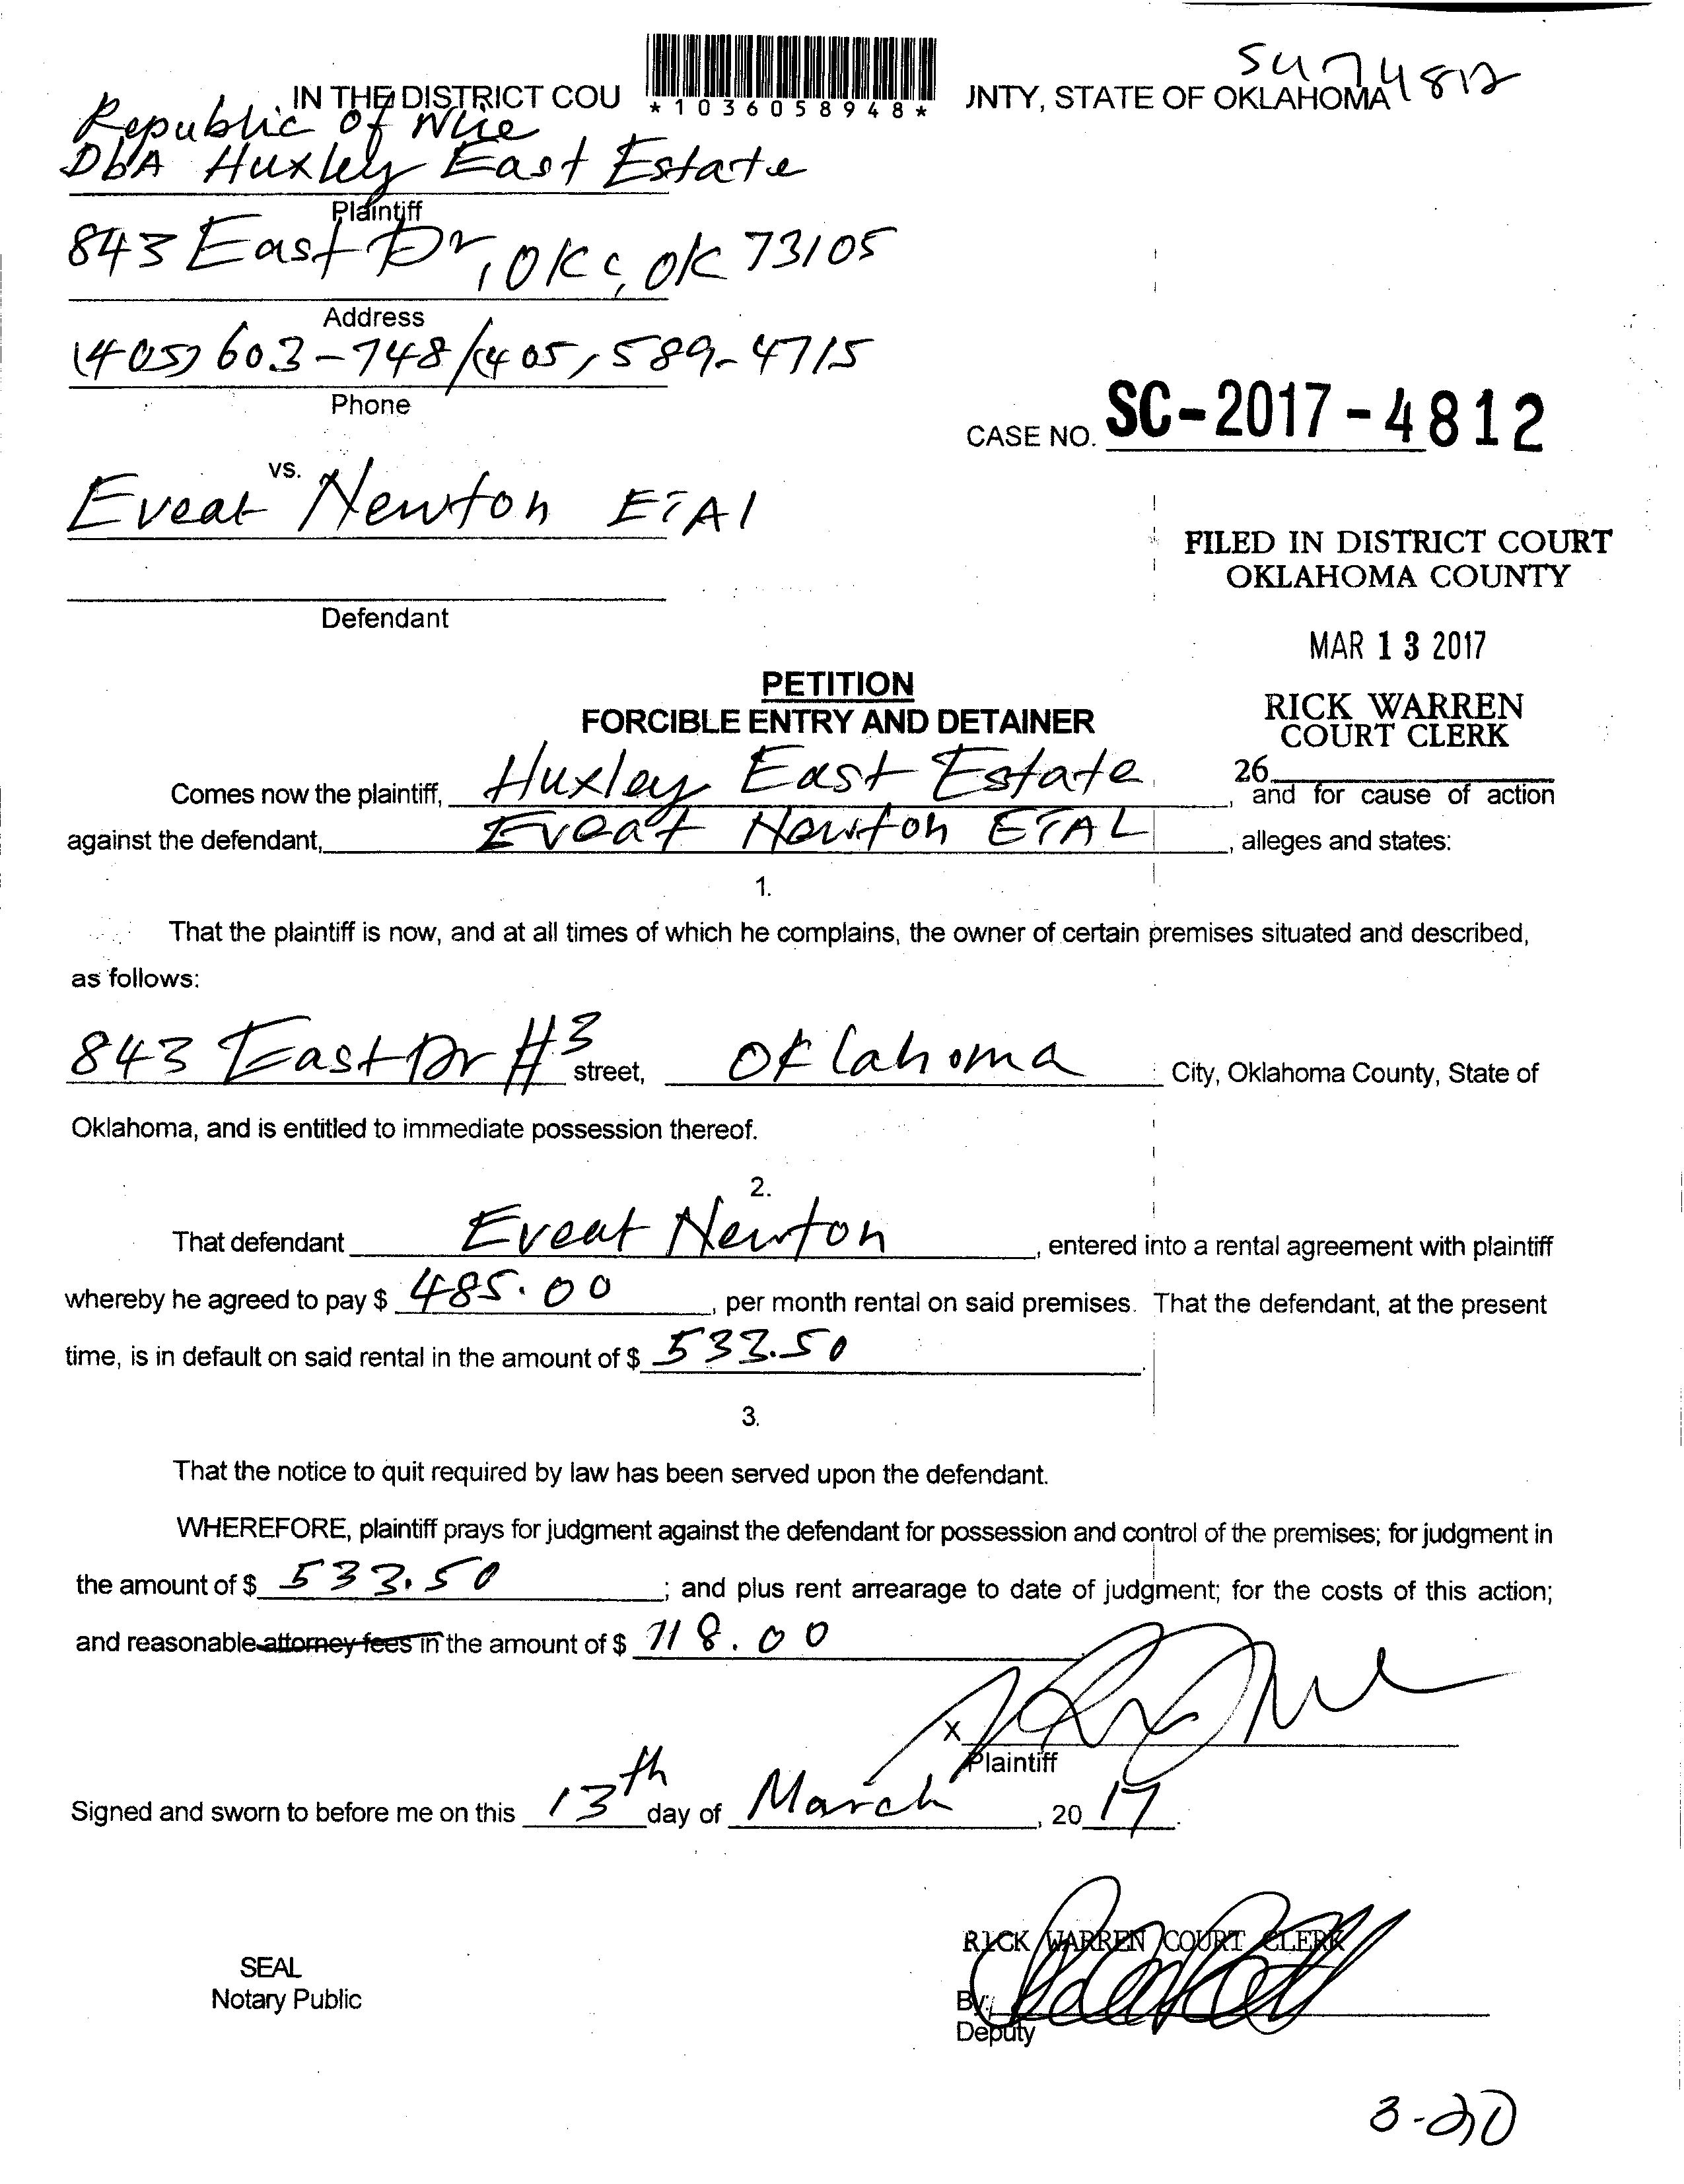 SC 17 4812
IN THE DISTRICT COU *1036058948* JNTY, STATE OF OKLAHOMA
Republic of Nue
DbA Huxley East Estate
Plaintiff
843 East Dr, OKC, OK 73105
Address
(405) 603-748/(405) 589-4715
Phone
CASE NO. SC-2017-4812
vs.
Eveat Newton ETAl
FILED IN DISTRICT COURT
OKLAHOMA COUNTY
Defendant
MAR 13 2017
PETITION
FORCIBLE ENTRY AND DETAINER
RICK WARREN
COURT CLERK
26
Comes now the plaintiff, Huxley East Estate, and for cause of action
against the defendant, Eveat Newton ETAL, alleges and states:
1.
That the plaintiff is now, and at all times of which he complains, the owner of certain premises situated and described,
as follows:
843 East Dr #3 street, Oklahoma City, Oklahoma County, State of
Oklahoma, and is entitled to immediate possession thereof.
2.
That defendant Eveat Newton, entered into a rental agreement with plaintiff
whereby he agreed to pay $ 485.00, per month rental on said premises. That the defendant, at the present
time, is in default on said rental in the amount of $ 533.50.
3.
That the notice to quit required by law has been served upon the defendant.
WHEREFORE, plaintiff prays for judgment against the defendant for possession and control of the premises; for judgment in
the amount of $ 533.50; and plus rent arrearage to date of judgment; for the costs of this action;
and reasonable attorney fees in the amount of $ 118.00
X
Plaintiff
Signed and sworn to before me on this 13th day of March, 20 17.
RICK WARREN COURT CLERK
SEAL
Notary Public
By:
Deputy
3-20